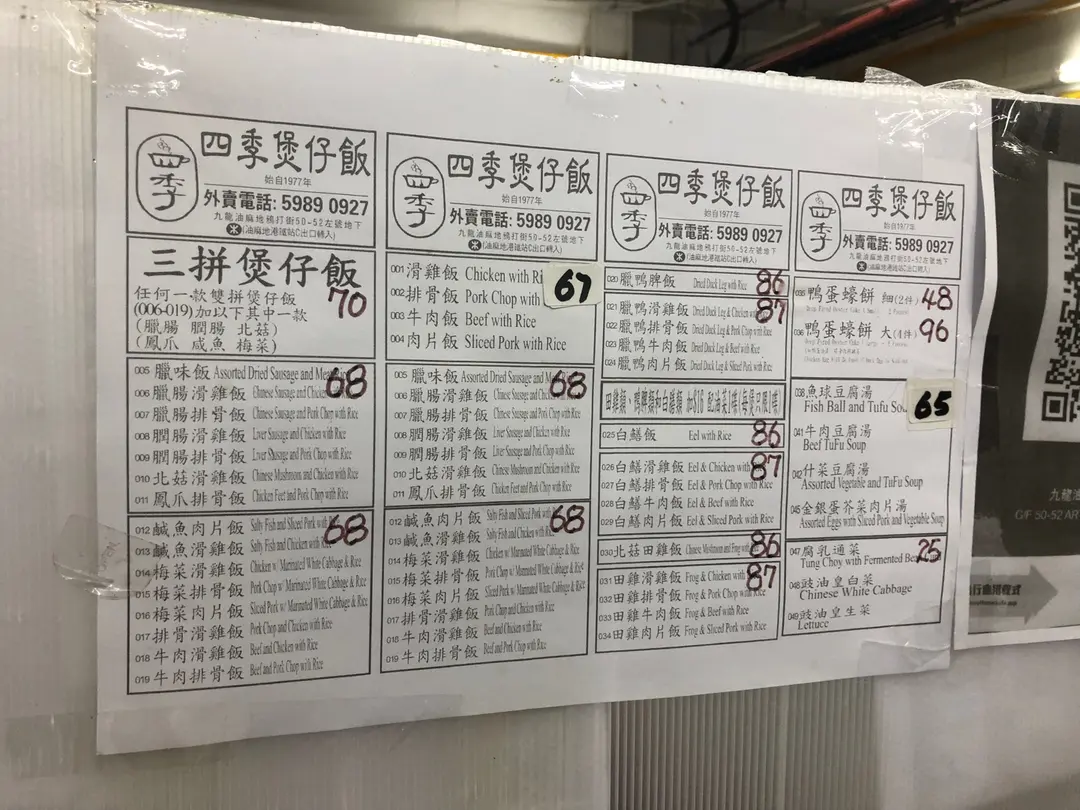 四季
四季煲仔飯
始自1977年
外賣電話: 5989 0927
九龍油麻地鴉打街50-52左號地下
(油麻地港鐵站C出口轉入)
三拼煲仔飯
任何一款雙拼煲仔飯 70
(006-019)加以下其中一款
(臘腸 膶腸 北菇)
(鳳爪 咸魚 梅菜)
005 臘味飯 Assorted Dried Sausage and 68
006 臘腸滑雞飯 Chinese Sausage and
007 臘腸排骨飯 Chinese Sausage and Pork Chop with Rice
008 膶腸滑雞飯 Liver Sausage and Chicken with Rice
009 膶腸排骨飯 Liver Sausage and Pork Chop with Rice
010 北菇滑雞飯 Chinese Mushroom and Chicken with Rice
011 鳳爪排骨飯 Chicken Feet and Pork Chop with Rice
012 鹹魚肉片飯 Salty Fish and Sliced Pork with 68
013 鹹魚滑雞飯 Salty Fish and Chicken with
014 梅菜滑雞飯 Chicken w/ Marinated White Cabbage & Rice
015 梅菜排骨飯 Pork Chop w/ Marinated White Cabbage & Rice
016 梅菜肉片飯 Sliced Pork w/ Marinated White Cabbage & Rice
017 排骨滑雞飯 Pork Chop and Chicken with Rice
018 牛肉滑雞飯 Beef and Chicken with Rice
019 牛肉排骨飯 Beef and Pork Chop with Rice
四季
四季煲仔飯
始自1977年
外賣電話: 5989 0927
九龍油麻地鴉打街50-52左號地下
(油麻地港鐵站C出口轉入)
001 滑雞飯 Chicken with 67
002 排骨飯 Pork Chop with
003 牛肉飯 Beef with Rice
004 肉片飯 Sliced Pork with Rice
005 臘味飯 Assorted Dried Sausage and 68
006 臘腸滑雞飯 Chinese Sausage and
007 臘腸排骨飯 Chinese Sausage and Pork Chop with Rice
008 膶腸滑雞飯 Liver Sausage and Chicken with Rice
009 膶腸排骨飯 Liver Sausage and Pork Chop with Rice
010 北菇滑雞飯 Chinese Mushroom and Chicken with Rice
011 鳳爪排骨飯 Chicken Feet and Pork Chop with Rice
012 鹹魚肉片飯 Salty Fish and Sliced Pork 68
013 鹹魚滑雞飯 Salty Fish and Chicken with
014 梅菜滑雞飯 Chicken w/ Marinated White Cabbage & Rice
015 梅菜排骨飯 Pork Chop w/ Marinated White Cabbage & Rice
016 梅菜肉片飯 Sliced Pork w/ Marinated White Cabbage & Rice
017 排骨滑雞飯 Pork Chop and Chicken with Rice
018 牛肉滑雞飯 Beef and Chicken with Rice
019 牛肉排骨飯 Beef and Pork Chop with Rice
四季
四季煲仔飯
始自1977年
外賣電話: 5989 0927
九龍油麻地鴉打街50-52左號地下
(油麻地港鐵站C出口轉入)
020 臘鴨髀飯 Dried Duck Leg with Rice 86
021 臘鴨滑雞飯 Dried Duck Leg & Chicken 87
022 臘鴨排骨飯 Dried Duck Leg & Pork Chop with Rice
023 臘鴨牛肉飯 Dried Duck Leg & Beef with Rice
024 臘鴨肉片飯 Dried Duck Leg & Sliced Pork with Rice
田雞類、鴨髀類和白鱔類 加$16 配油菜1碟(每煲只限1碟)
025 白鱔飯 Eel with Rice 86
026 白鱔滑雞飯 Eel & Chicken with 87
027 白鱔排骨飯 Eel & Pork Chop with Rice
028 白鱔牛肉飯 Eel & Beef with Rice
029 白鱔肉片飯 Eel & Sliced Pork with Rice
030 北菇田雞飯 Chinese Mushroom and Frog with 86
031 田雞滑雞飯 Frog & Chicken with 87
032 田雞排骨飯 Frog & Pork Chop with Rice
033 田雞牛肉飯 Frog & Beef with Rice
034 田雞肉片飯 Frog & Sliced Pork with Rice
四季
四季煲仔飯
始自1977年
外賣電話: 5989 0927
九龍油麻地鴉打街50-52左號地下
(油麻地港鐵站C出口轉入)
035 鴨蛋蠔餅 細(2件) 48
036 鴨蛋蠔餅 大(4件) 96
038 魚球豆腐湯 65
Fish Ball and Tufu
041 牛肉豆腐湯
Beef TuFu Soup
042 什菜豆腐湯
Assorted Vegetable and TuFu Soup
045 金銀蛋芥菜肉片湯
Assorted Eggs with Sliced Pork and Vegetable Soup
047 腐乳通菜 25
Tung Choy with Fermented
048 豉油皇白菜
Chinese White Cabbage
049 豉油皇生菜
Lettuce
九龍
G/F 50-52